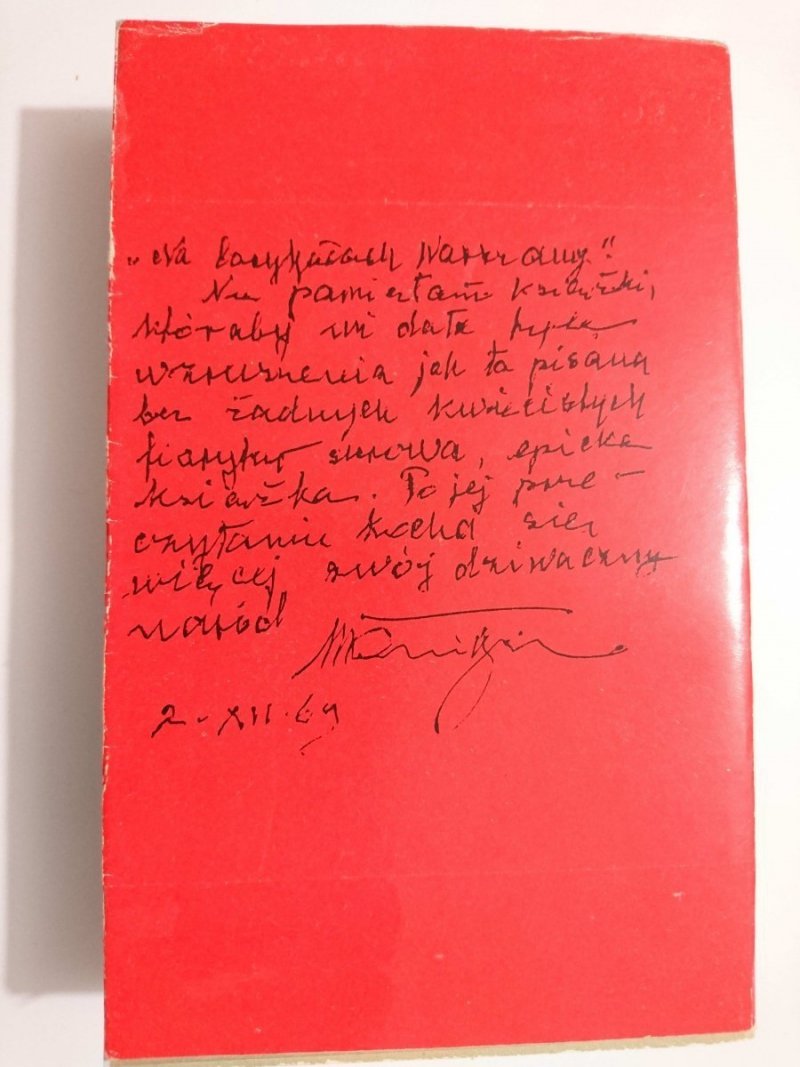 „Na barykadach Warszawy."
Nie pamiętam książki,
któraby mi dała tyle
wzruszenia jak ta pisana
bez żadnych kwiecistych
surowa, epicka
książka. Po jej prze-
czytaniu kocha się
więcej swój dziwaczny
naród
2-XII-69